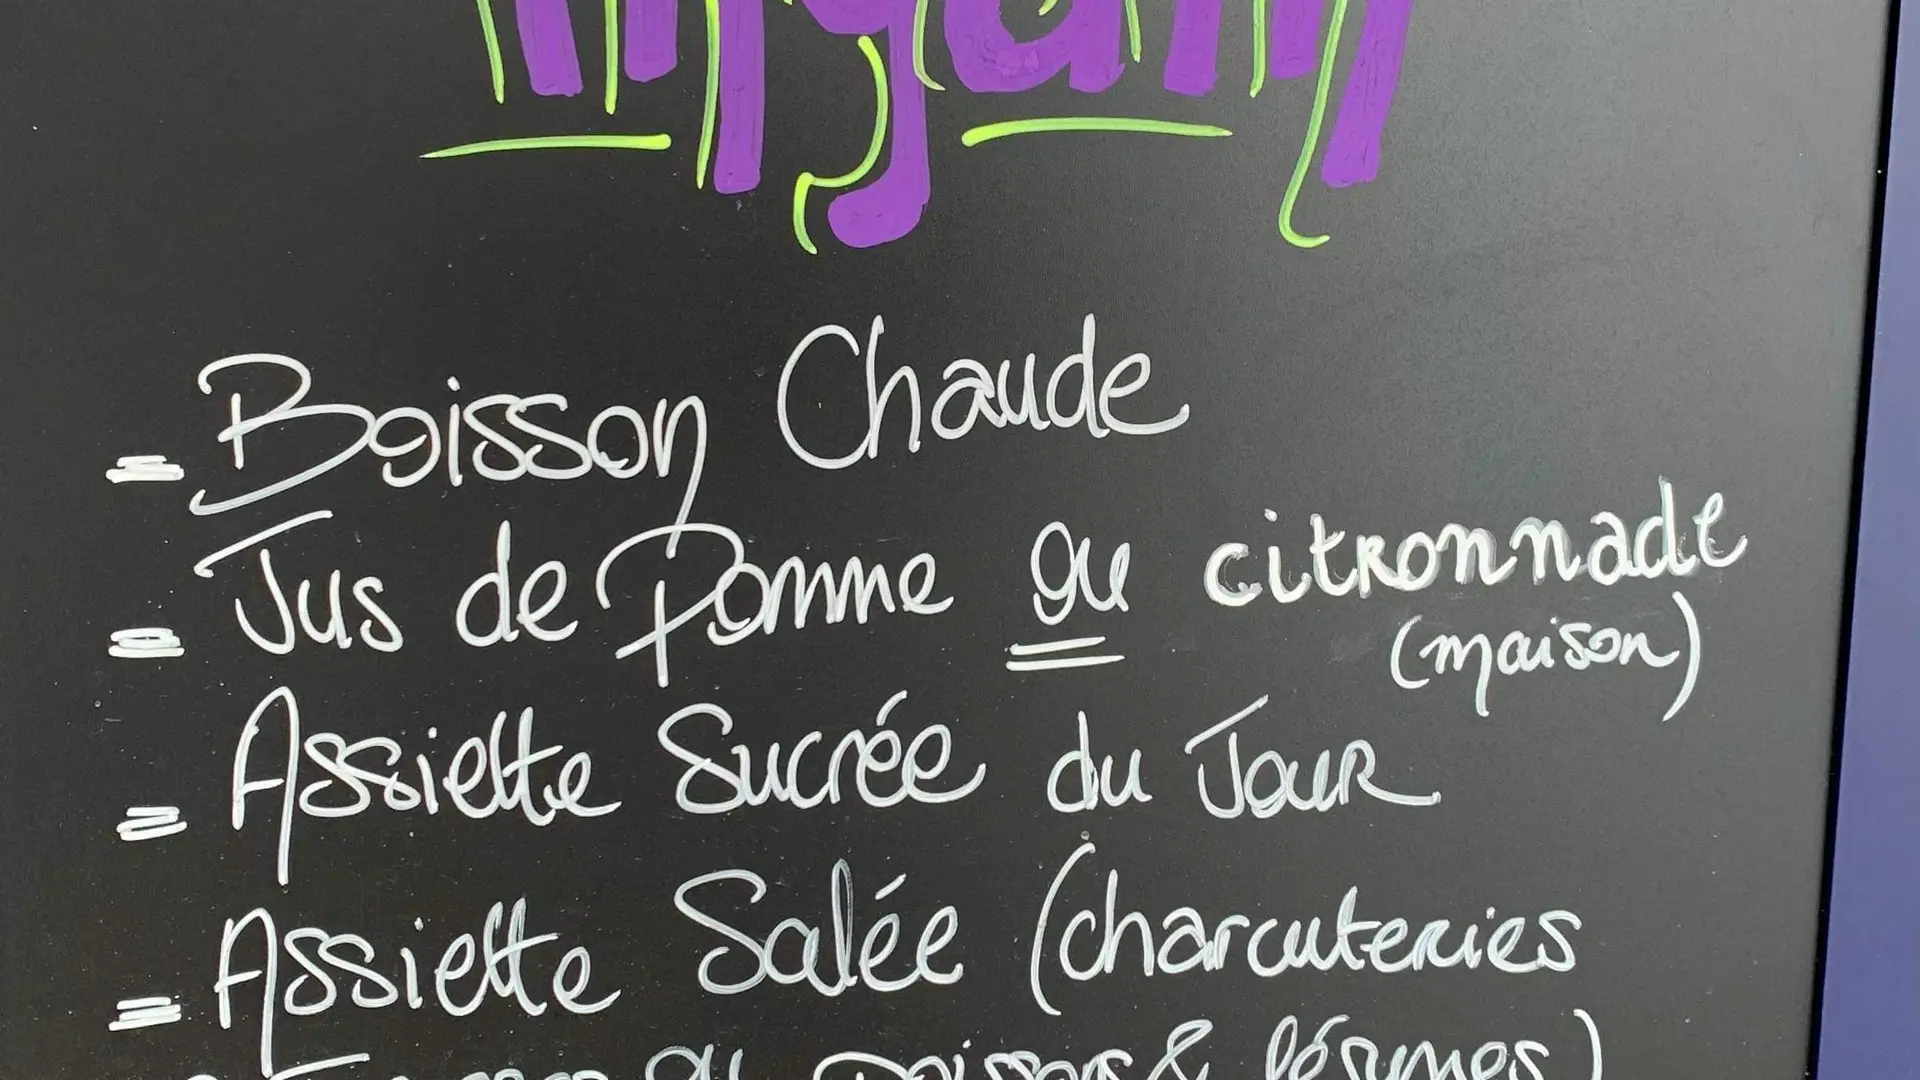 - Boisson Chaude
- Jus de Pomme ou citronnade
(maison)
- Assiette Sucrée du Jour
- Assiette Salée (charcuteries
ou poissons & légumes)